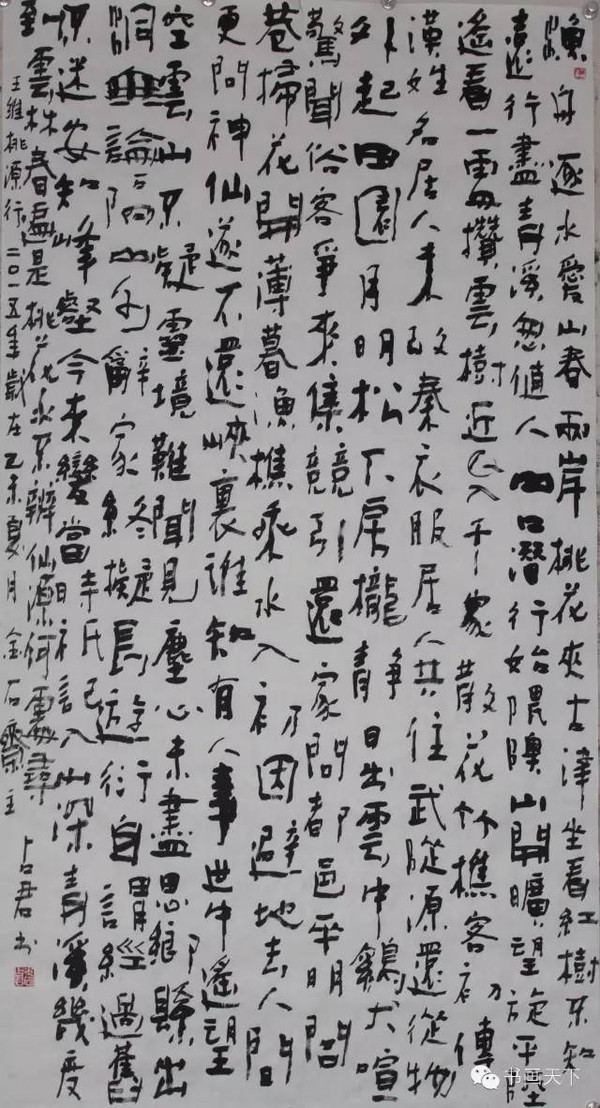 漁舟逐水愛山春兩岸桃花夾古津坐看紅樹不知
遠行盡青溪忽值人山口潛行始隈隩山開曠望旋平陸
遙看一處攢雲樹近入千家散花竹樵客初傳
漢姓名居人未改秦衣服居人共住武陵源還從物
外起田園月明松下房櫳靜日出雲中鷄犬喧
驚聞俗客爭來集競引還家問都邑平明閭
巷掃花開薄暮漁樵乘水入初因避地去人間
更問神仙遂不還峽裏誰知有人事世中遙望
空雲山不疑靈境難聞見塵心未盡思鄉縣出
洞無論隔山水辭家終擬長遊衍自謂經過舊
不迷安知峰壑今來變當時祇記入山深青溪幾度
到雲林春遍是桃花水不辨仙源何處尋
王維桃源行二〇一五年歲在乙未夏月金石齋主占君书
书画天下